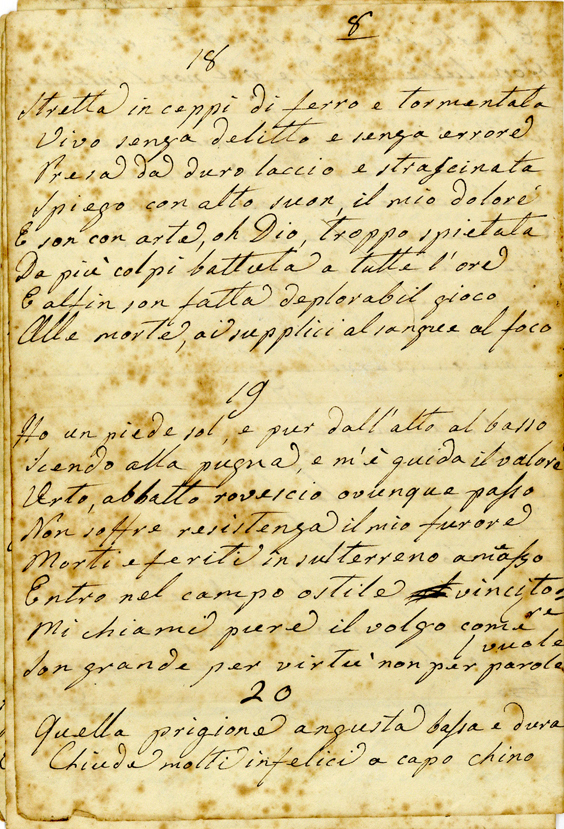 8
18
Stretta in ceppi di ferro e tormentata
Vivo senza delitto e senza errore
Presa da duro laccio e strascinata
Spiego con alto suon, il mio dolore
E son con arte, oh Dio, troppo spietata
Da più colpi battuta a tutte l'ore
E alfin son fatta deplorabil gioco
Alle morte, ai supplici al sangue al foco
19
Ho un piede sol', e pur dall'alto al basso
Scendo alla pugna, e m'è guida il valore
Urto, abbatto rovescio ovunque passo
Non soffre resistenza il mio furore
Morti e feriti in sul terreno amasso
Entro nel campo ostile vincitore
Mi chiami pure il volgo come vuole
Son grande per virtù non per parole
20
Quella prigione angusta bassa e dura
Chiude molti infelici a capo chino